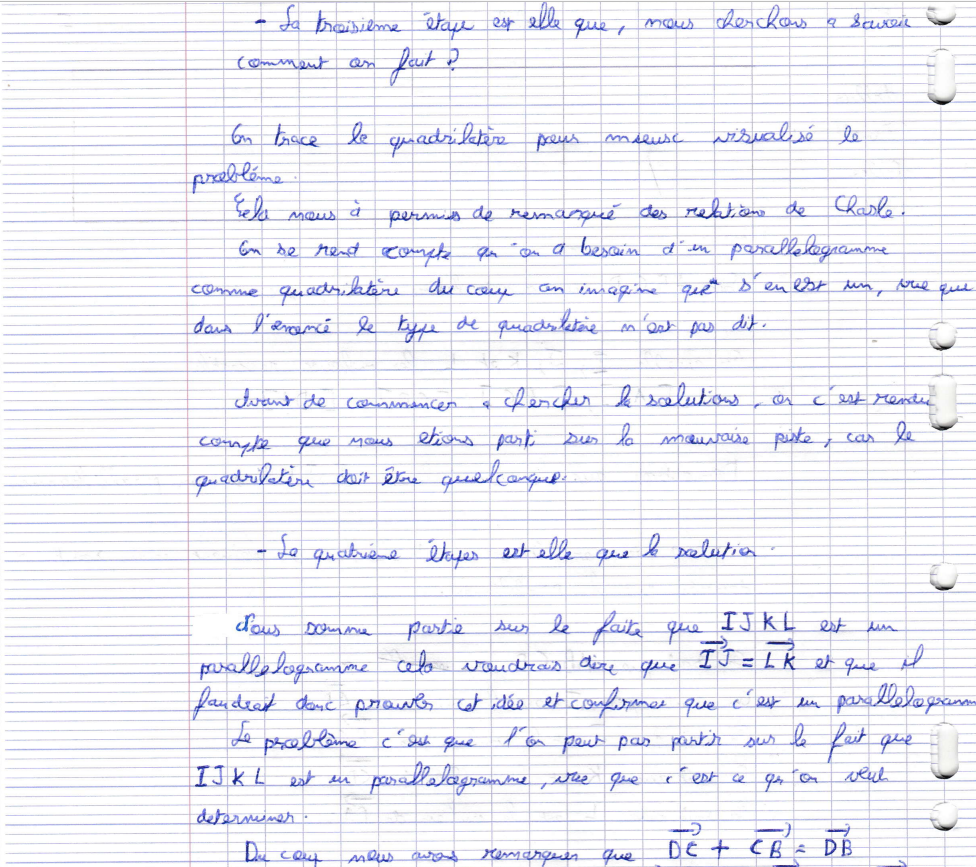 - La troisième étape est elle que, nous cherchons a savoir
comment on fait ?
On trace le quadrilatère pour mieux visualisé le
problème.
Cela nous à permis de remarqué des relations de Charle.
On se rend compte qu'on a besoin d'un parallelogramme
comme quadrilatère du coup on imagine que s'en est un, vue que
dans l'énoncé le type de quadrilatère n'est pas dit.
Avant de commencer a chercher la solutions, on c'est rendu
compte que nous etions parti sur la mauvaise piste, car le
quadrilatère doit être quelconque.
- La quatrième étapes est elle que la solution.
Nous somme partie sur le faite que IJKL est un
parallelogramme cela voudras dire que $\overrightarrow{IJ} = \overrightarrow{LK}$ et que il
faudrait donc prouver cet idée et confirmer que c'est un parallelogramm
Le problème c'est que l'on peut pas partir sur le fait que
IJKL est un parallelogramme, vue que c'est ce qu'on veut
determiner.
Du coup nous avons remarquer que $\overrightarrow{DC} + \overrightarrow{CB} = \overrightarrow{DB}$